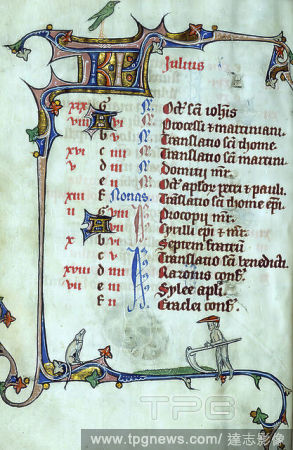 KL Julius
xix g N Oct' sci iohis
viii A vi N Processi & martiniani.
b v N Translatio sci thome.
xvi c iiii N Translatio sci martini.
v d iii N Domitii mr.
e ii N Oct' aplor petri & pauli.
xiii f Nonas. Translatio sci thome epi.
ii g viii Procopii mr.
A vii Cyrilli epi & mr.
x b vi Septem fratrum
c v Translatio sci benedicti.
xviii d iiii Naronis conf'.
vii e iii Sylee apli.
f ii Eraclei conf'.
TPG
www.tpgnews.com / 達志影像